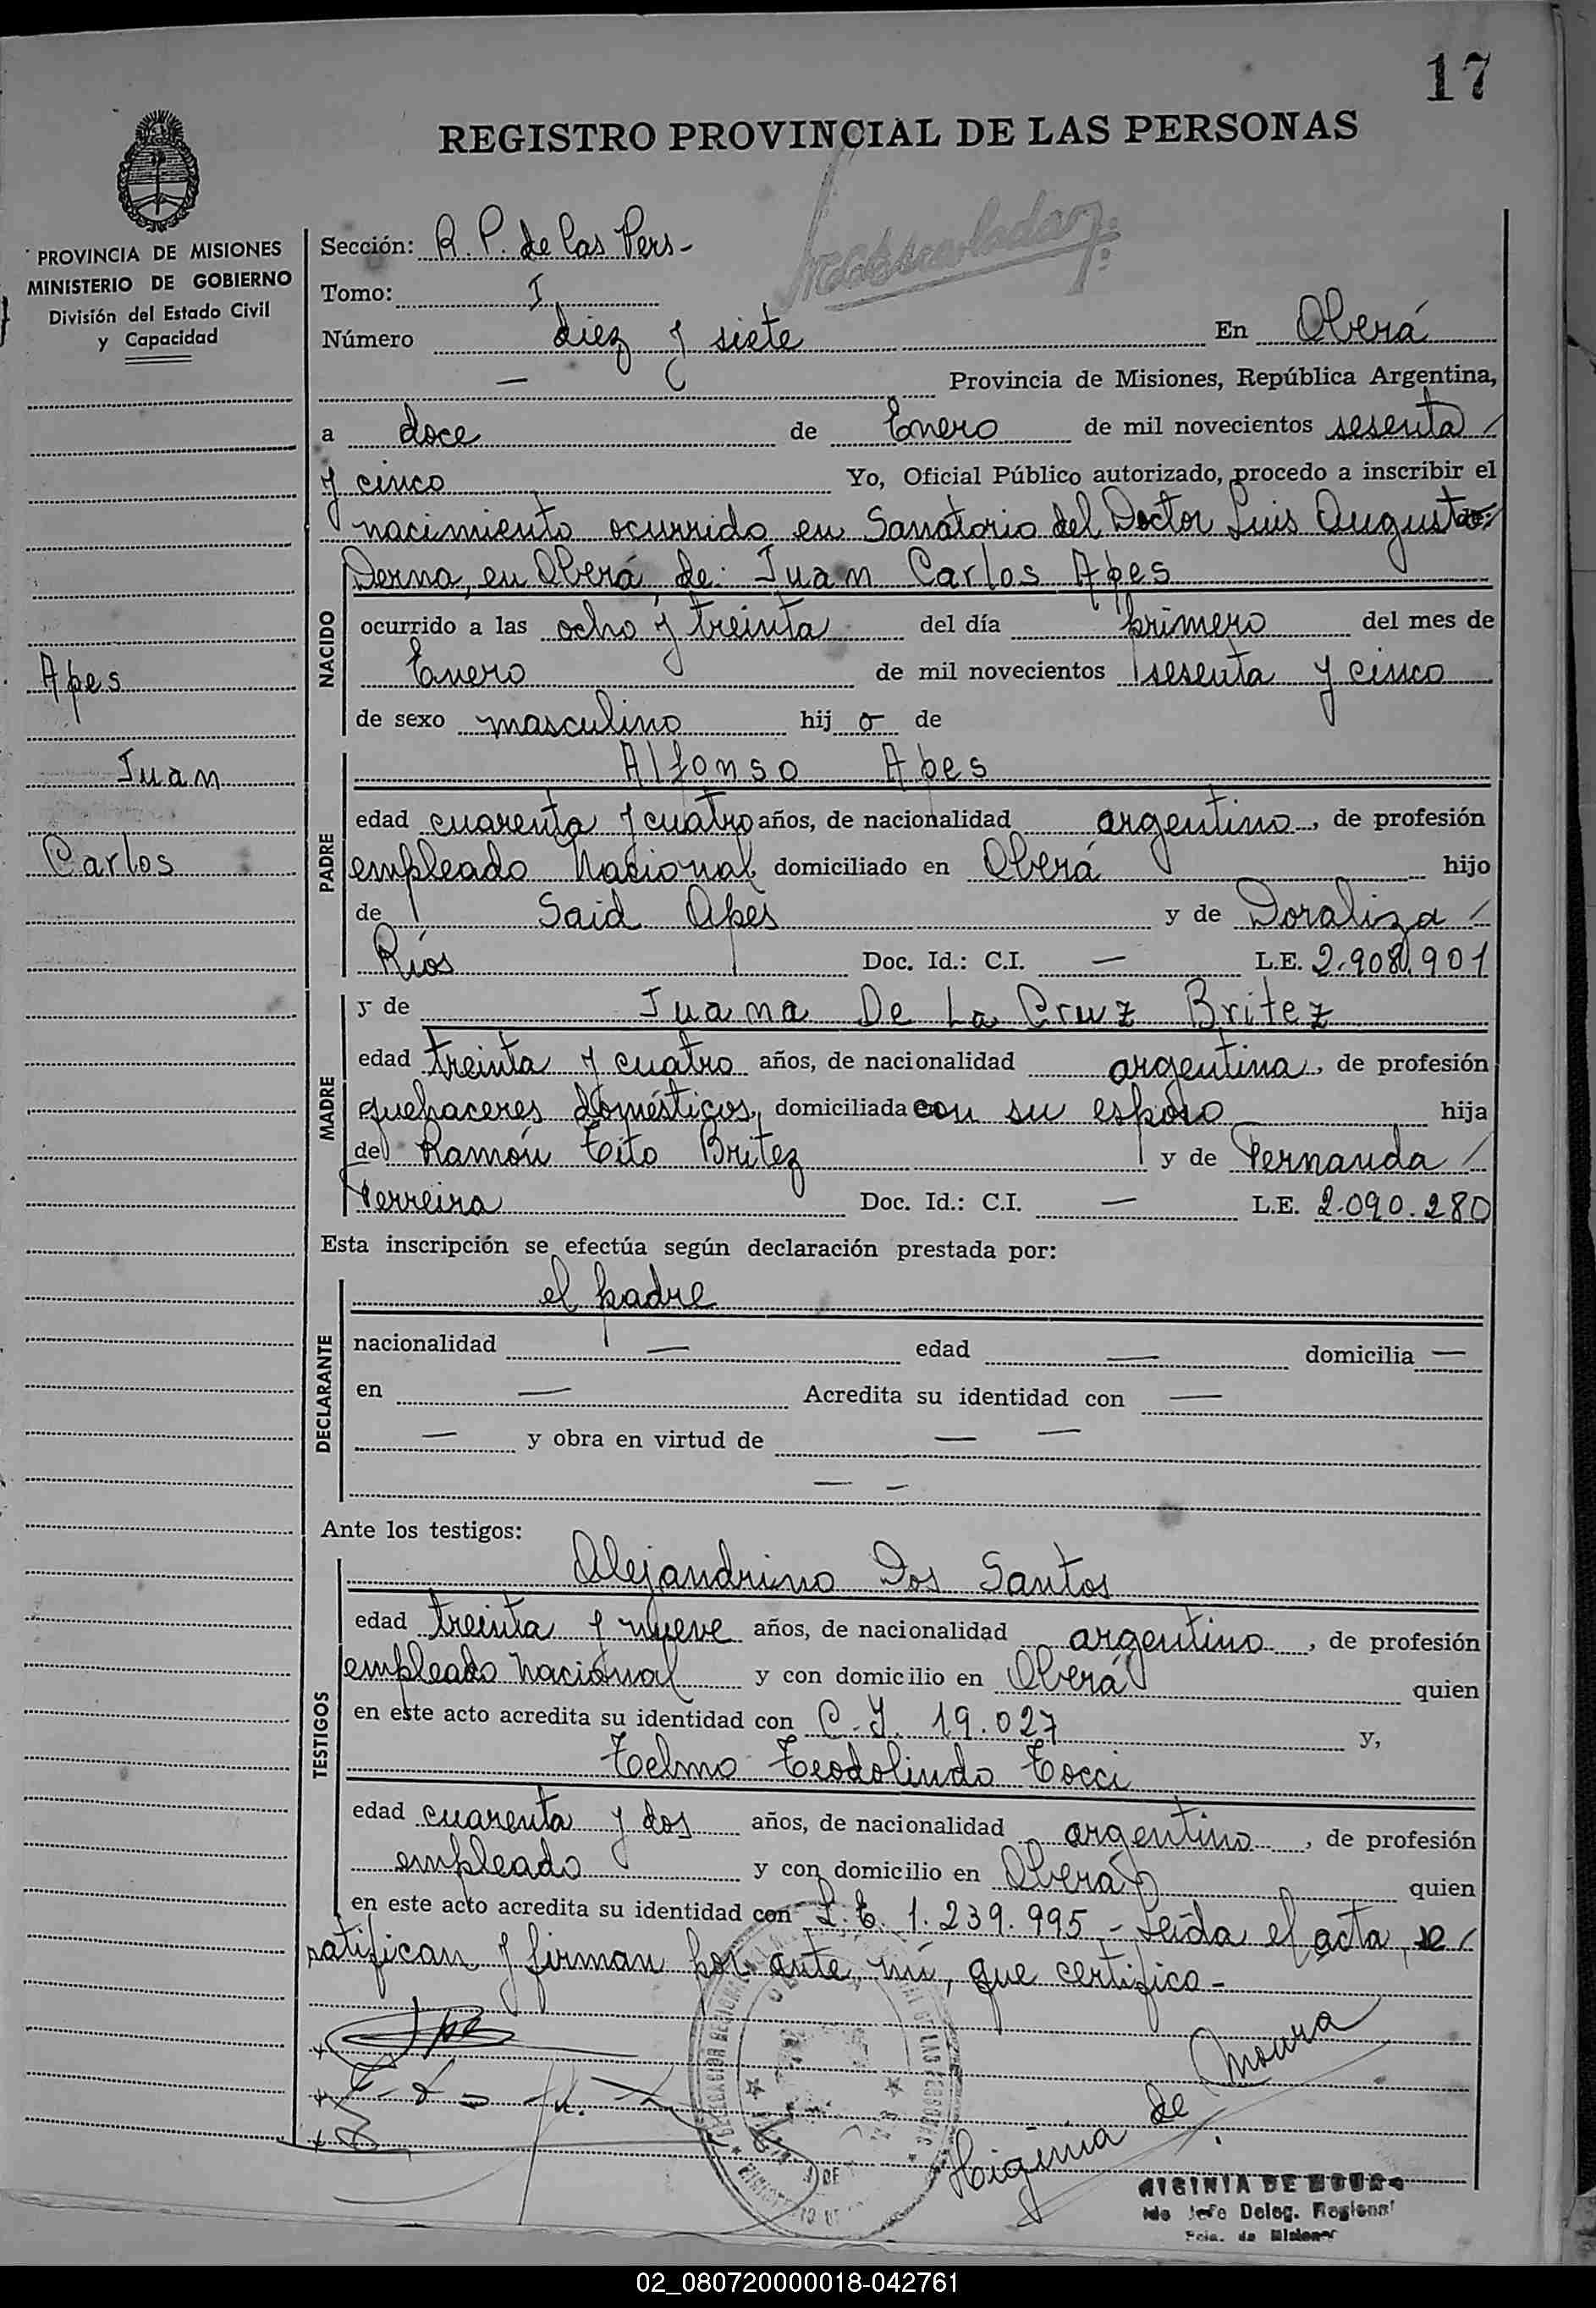 17
REGISTRO PROVINCIAL DE LAS PERSONAS
PROVINCIA DE MISIONES
MINISTERIO DE GOBIERNO
División del Estado Civil
y Capacidad
Sección: R. P. de las Pers-
Tomo: I
Número diez y siete En Oberá
— Provincia de Misiones, República Argentina,
a doce de Enero de mil novecientos sesenta
y cinco Yo, Oficial Público autorizado, procedo a inscribir el
nacimiento ocurrido en Sanatorio del Doctor Luis Augusto
Derna, en Oberá, de: Juan Carlos Apes
NACIDO
ocurrido a las ocho y treinta del día primero del mes de
Enero de mil novecientos sesenta y cinco
de sexo masculino hij o de
Apes
Juan
Carlos
PADRE
Alfonso Apes
edad cuarenta y cuatro años, de nacionalidad argentino, de profesión
empleado Nacional domiciliado en Oberá hijo
de Said Apes y de Doraliza
Ríos Doc. Id.: C.I. — L.E. 2.908.901
MADRE
y de Juana De La Cruz Britez
edad treinta y cuatro años, de nacionalidad argentina, de profesión
quehaceres domésticos, domiciliada con su esposo hija
de Ramón Tito Britez y de Fernanda
Ferreira Doc. Id.: C.I. — L.E. 2.090.280
Esta inscripción se efectúa según declaración prestada por:
DECLARANTE
el padre
nacionalidad — edad — domicilia —
en — Acredita su identidad con —
— y obra en virtud de — —
— —
Ante los testigos:
TESTIGOS
Alejandrino Dos Santos
edad treinta y nueve años, de nacionalidad argentino, de profesión
empleado nacional y con domicilio en Oberá quien
en este acto acredita su identidad con C.I. 19.027 y,
Telmo Teodolindo Tocci
edad cuarenta y dos años, de nacionalidad argentino, de profesión
empleado y con domicilio en Oberá quien
en este acto acredita su identidad con L.E. 1.239.995 - Leída el acta, se
ratifican y firman por ante mí, que certifico-
Higinia de Moura
HIGINIA DE MOURA
Jefe Deleg. Regional
Pcia. de Misiones
02_080720000018-042761